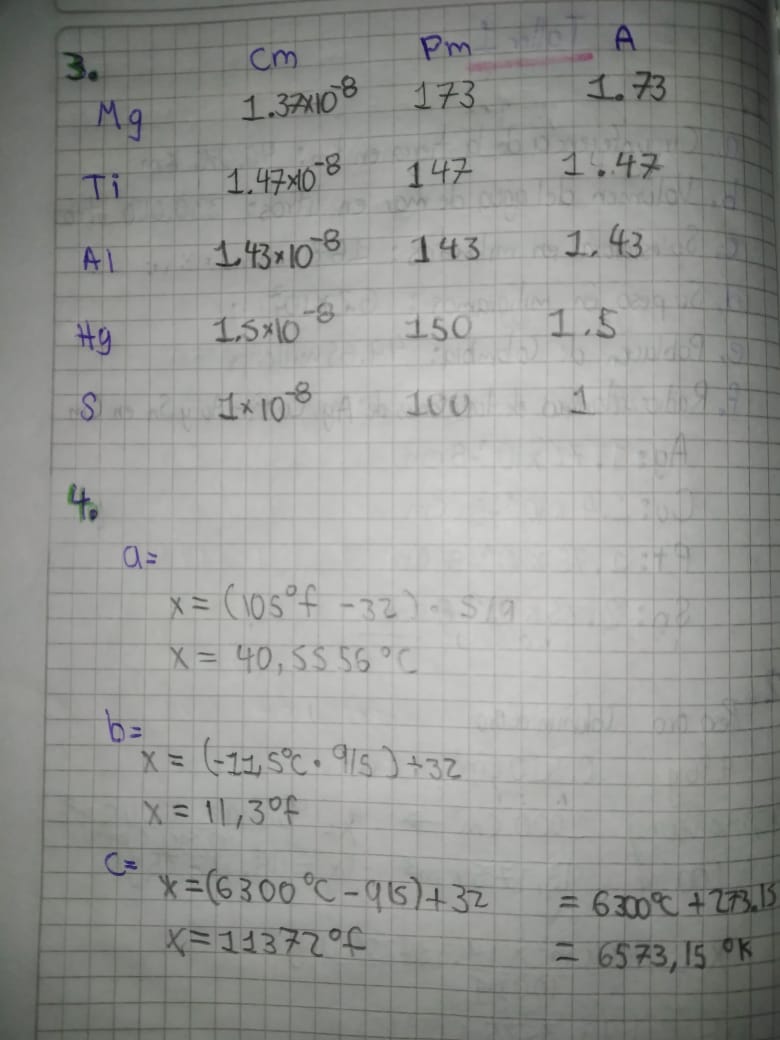 3.
Cm Pm A
Mg 1.37x10-8 173 1.73
Ti 1.47x10-8 147 1.47
Al 1.43x10-8 143 1.43
Hg 1.5x10-8 150 1.5
S 1x10-8 100 1
4.
a=
x = (105°f - 32) · 5/9
x = 40,5556°C
b=
x = (-11,5°c · 9/5) +32
x = 11,3°f
c=
x=(6300°C - 9/5)+32 = 6300°C + 273.15
x=11372°f = 6573,15 °K